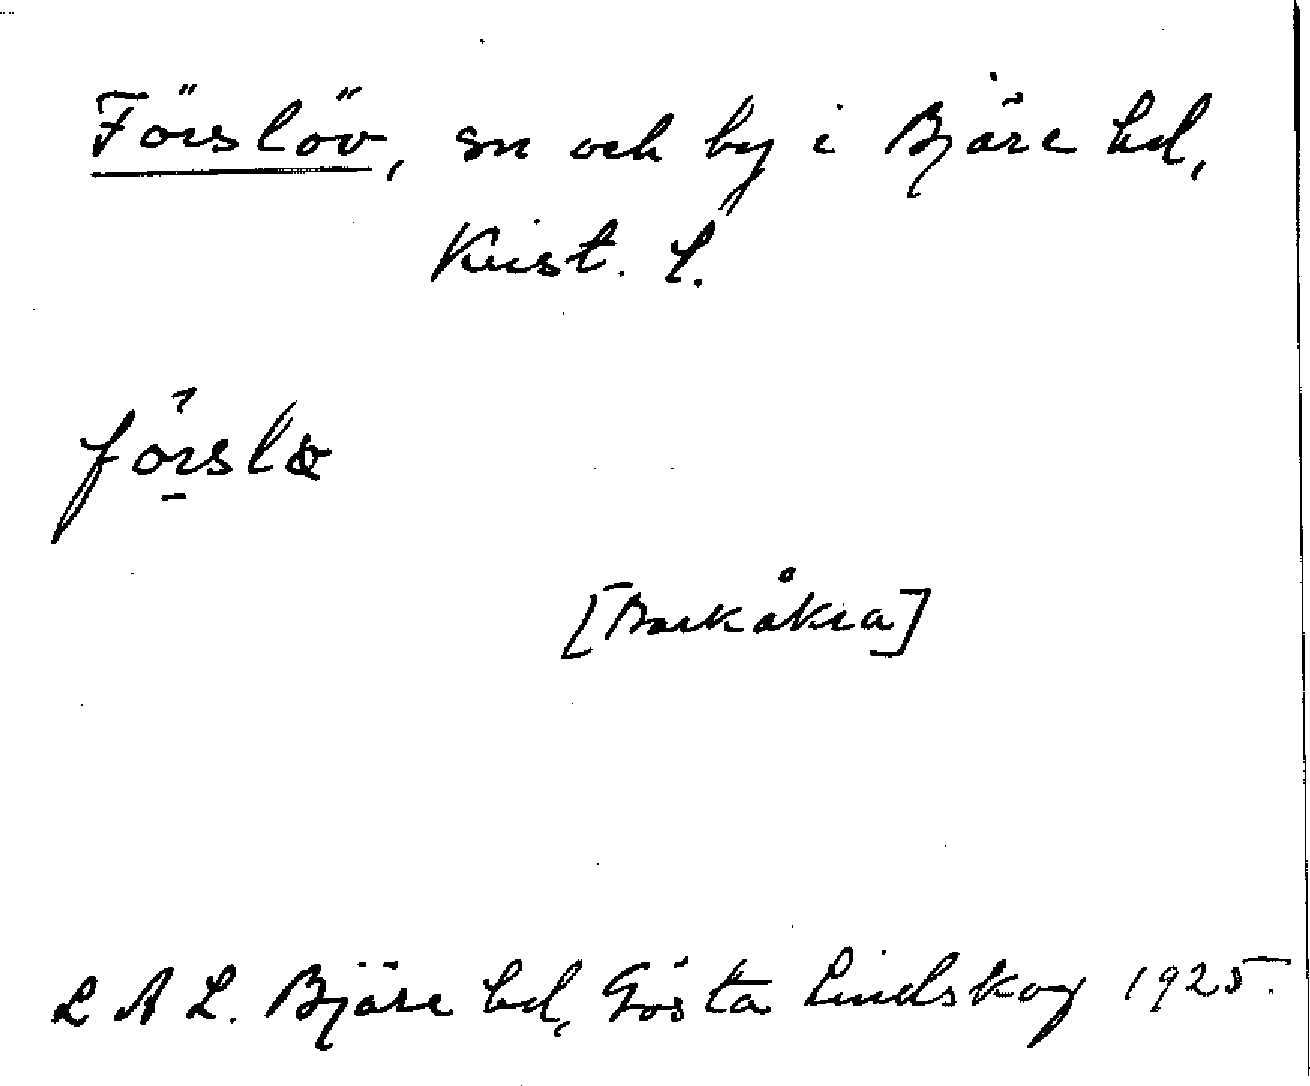 Förslöv, sn och by i Bjäre hd,
Krist. l.
[Barkåkra]
L A L. Bjäre hd, Gösta Lindskog 1925.